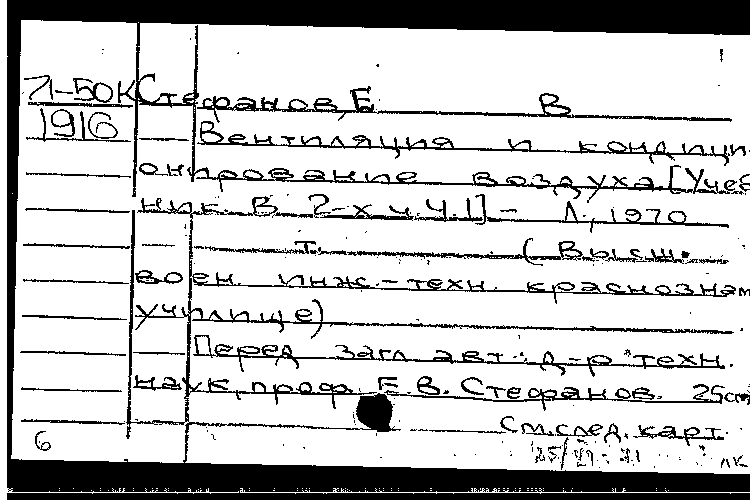 Л-50К Стефанов, Е В
1916 Вентиляция и кондици-
онирование воздуха. [Учеб
ник. В 2-х ч. Ч.1] - Л., 1970
т. (Высш.
воен. инж.-техн. краснознам
училище)
Перед загл. авт.: д-р техн.
наук, проф. Е.В. Стефанов. 25см
См. след. карт.
6
лк